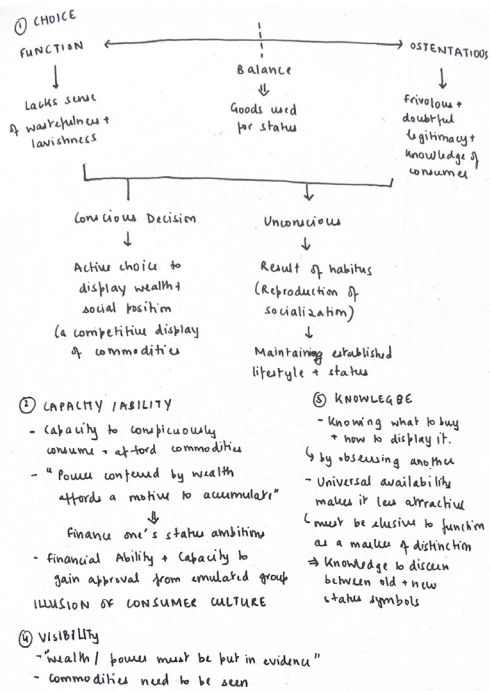 ① CHOICE
FUNCTION
Balance
OSTENTATIOUS
Lacks sense
of wastefulness +
lavishness
Goods used
for status
Frivolous +
doubtful
legitimacy +
knowledge of
consumer
Conscious Decision
Active choice to
display wealth +
social position
(a competitive display
of commodities
Unconscious
Result of habitus
(Reproduction of
socialization)
Maintaining established
lifestyle + status
② CAPACITY / ABILITY
- Capacity to conspicuously
consume + afford commodities
- "Power conferred by wealth
affords a motive to accumulate"
Finance one's status ambitions
- Financial Ability + Capacity to
gain approval from emulated group
ILLUSION OF CONSUMER CULTURE
③ KNOWLEGBE
- Knowing what to buy
+ how to display it.
↳ by observing another
- Universal availability
makes it less attractive
↳ must be elusive to function
as a marker of distinction
⇒ Knowledge to discern
between old + new
status symbols
④ VISIBILITY
- "wealth / power must be put in evidence"
- Commodities need to be seen